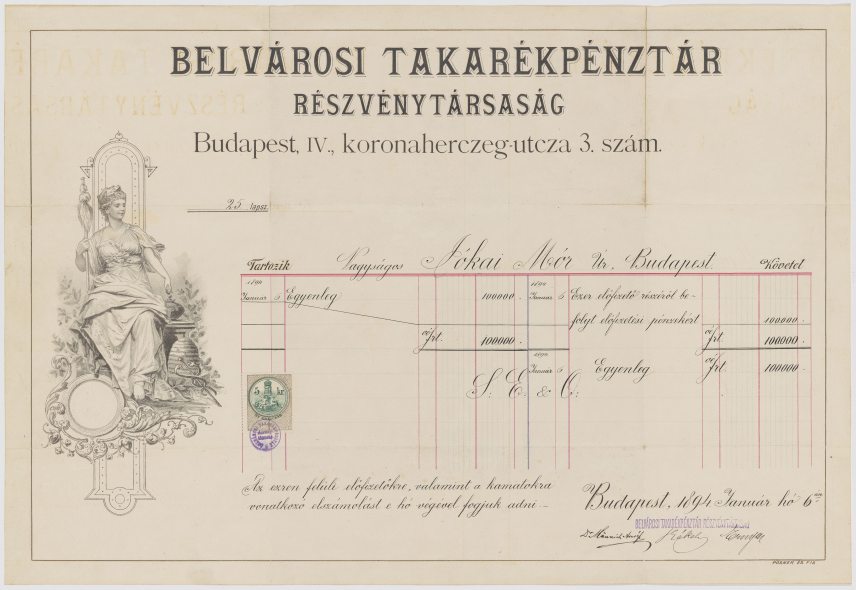 BELVÁROSI TAKARÉKPÉNZTÁR
RÉSZVÉNYTÁRSASÁG
Budapest, IV., koronaherczeg-utcza 3. szám.
25 lapsz.
Tartozik Nagyságos Jókai Mór Úr, Budapest. Követel
1894 Január 6 Egyenleg 100000 . 1894 Január 6 Ezer előfizető részéről be-
folyt előfizetési pénzekért 100000 .
Frt. 100000 . Frt. 100000 .
1894 Január 6 Egyenleg Frt. 100000 .
S. E. & O.
5 kr
Az ezren felüli előfizetőkre, valamint a kamatokra
vonatkozó elszámolást e hó végével fogjuk adni.—
Budapest, 1894 Január hó 6án
BELVÁROSI TAKARÉKPÉNZTÁR RÉSZVÉNYTÁRSASÁG
POSNER ÉS FIA